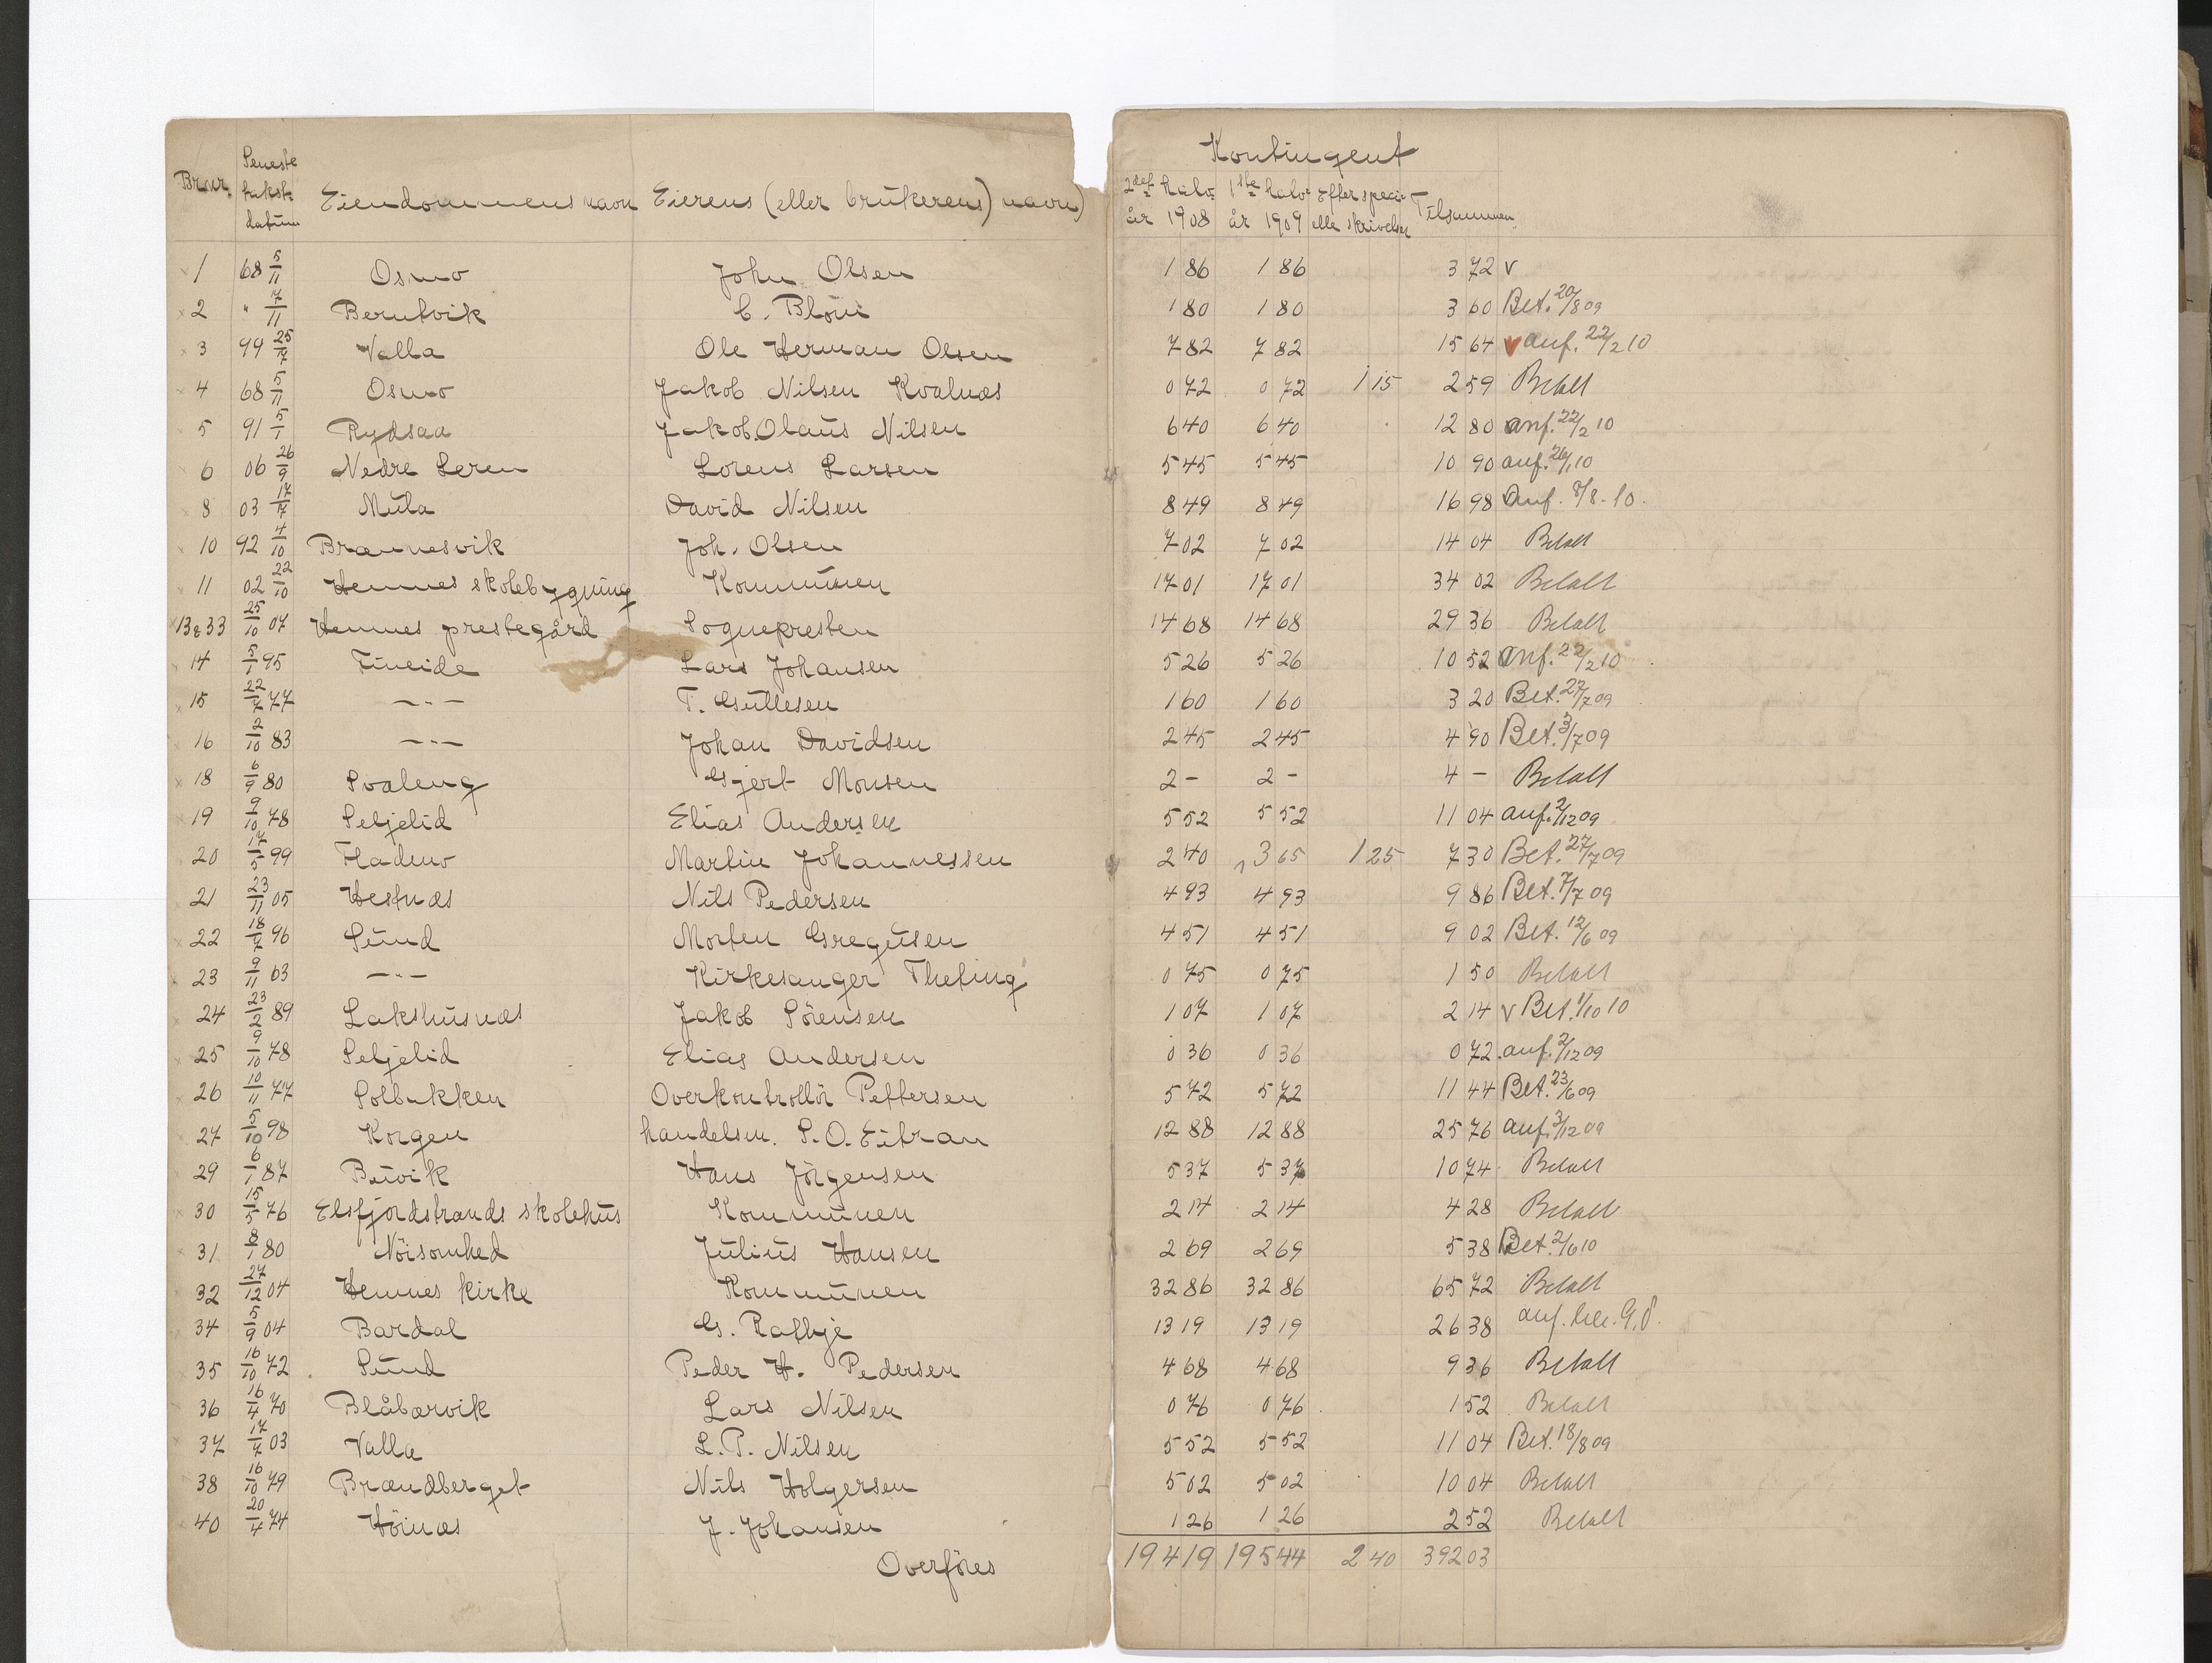 Kontingent
Br.nr. Seneste takst-datum Eiendommens navn Eierens (eller brukerens) navn 2det halvår 1908 1ste halvår 1909 Efter speci-elle skrivelser Tilsammen
1 68 5/11 Osmo John Olsen 1 86 1 86 3 72 v
2 " 7/11 Berntvik C. Blöni 1 80 1 80 3 60 Bet. 20/8 09
3 99 25/7 Valla Ole Herman Olsen 7 82 7 82 15 64 v anf. 22/2 10
4 68 5/11 Osmo Jakob Nilsen Kvalnæs 0 72 0 72 1 15 2 59 Betalt
5 91 5/1 Rydsaa Jakob Olaus Nilsen 6 40 6 40 12 80 anf. 22/2 10
6 06 26/9 Nedre Leren Lorens Larsen 5 45 5 45 10 90 anf. 26/1 10
8 03 17/7 Mula David Nilsen 8 49 8 49 16 98 anf. 8/8-10.
10 92 4/10 Brannesvik Joh. Olsen 7 02 7 02 14 04 Betalt
11 02 22/10 Hemnes skolebygning Kommunen 17 01 17 01 34 02 Betalt
13&33 25/10 07 Hemnes prestegård Sognepresten 14 68 14 68 29 36 Betalt
14 5/1 95 Fineide Lars Johansen 5 26 5 26 10 52 anf. 22/2 10
15 22/7 77 —"— T. Gullesen 1 60 1 60 3 20 Bet. 27/7 09
16 2/10 83 —"— Johan Davidsen 2 45 2 45 4 90 Bet. 3/7 09
18 6/9 80 Svaleng Gjert Monsen 2 - 2 - 4 - Betalt
19 9/10 78 Seljelid Elias Andersen 5 52 5 52 11 04 anf. 2/12 09
20 17/5 99 Fladmo Martin Johannessen 2 40 3 65 1 25 7 30 Bet. 27/7 09
21 23/11 05 Hestnæs Nils Pedersen 4 93 4 93 9 86 Bet. 7/7 09
22 18/7 96 Sund Morten Gregusen 4 51 4 51 9 02 Bet. 12/6 09
23 9/11 03 —"— Kirkesanger Theting 0 75 0 75 1 50 Betalt
24 23/2 89 Lakshusnæs Jakob Sörensen 1 07 1 07 2 14 v Bet. 1/10 10
25 9/10 78 Seljelid Elias Andersen 0 36 0 36 0 72 anf. 2/12 09
26 10/11 77 Solbakken Overkontrollör Pettersen 5 72 5 72 11 44 Bet. 23/6 09
27 5/10 98 Korgen handelsm. P.O. Eitran 12 88 12 88 25 76 anf. 3/12 09
29 6/1 87 Buvik Hans Jörgensen 5 37 5 37 10 74 Betalt
30 15/5 76 Elsfjordstrands skolehus Kommunen 2 14 2 14 4 28 Betalt
31 8/1 80 Nöisomhed Julius Hansen 2 69 2 69 5 38 Bet. 2/6 10
32 27/12 04 Hemnes kirke Kommunen 32 86 32 86 65 72 Betalt
34 5/9 04 Bardal G. Rafhje 13 19 13 19 26 38 anf.
35 16/10 72 Sund Peder H. Pedersen 4 68 4 68 9 36 Betalt
36 16/4 70 Blåbærvik Lars Nilsen 0 76 0 76 1 52 Betalt
37 17/7 03 Valla L.P. Nilsen 5 52 5 52 11 04 Bet. 18/8 09
38 16/10 79 Brændberget Nils Holgersen 5 02 5 02 10 04 Betalt
40 20/4 74 Höinæs J. Johansen 1 26 1 26 2 52 Betalt
Overföres 194 19 195 44 2 40 392 03